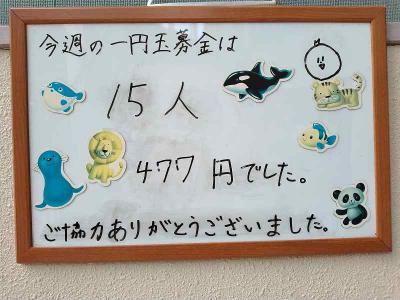 今週の一円玉募金は
15人
477円でした。
ご協力ありがとうございました。